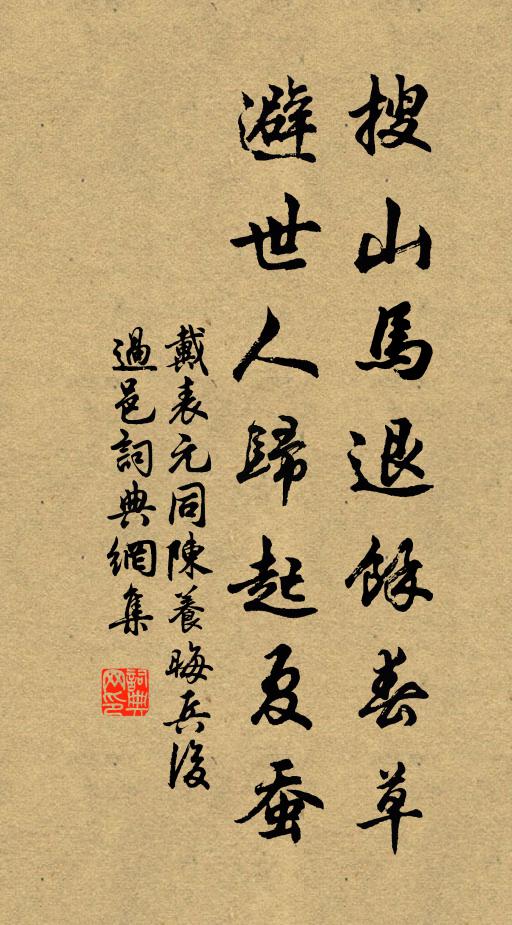 搜山馬退餘春草
避世人歸起夏蚕
戴表元同陳養晦兵後
過邑詞典網集
詞典
网印